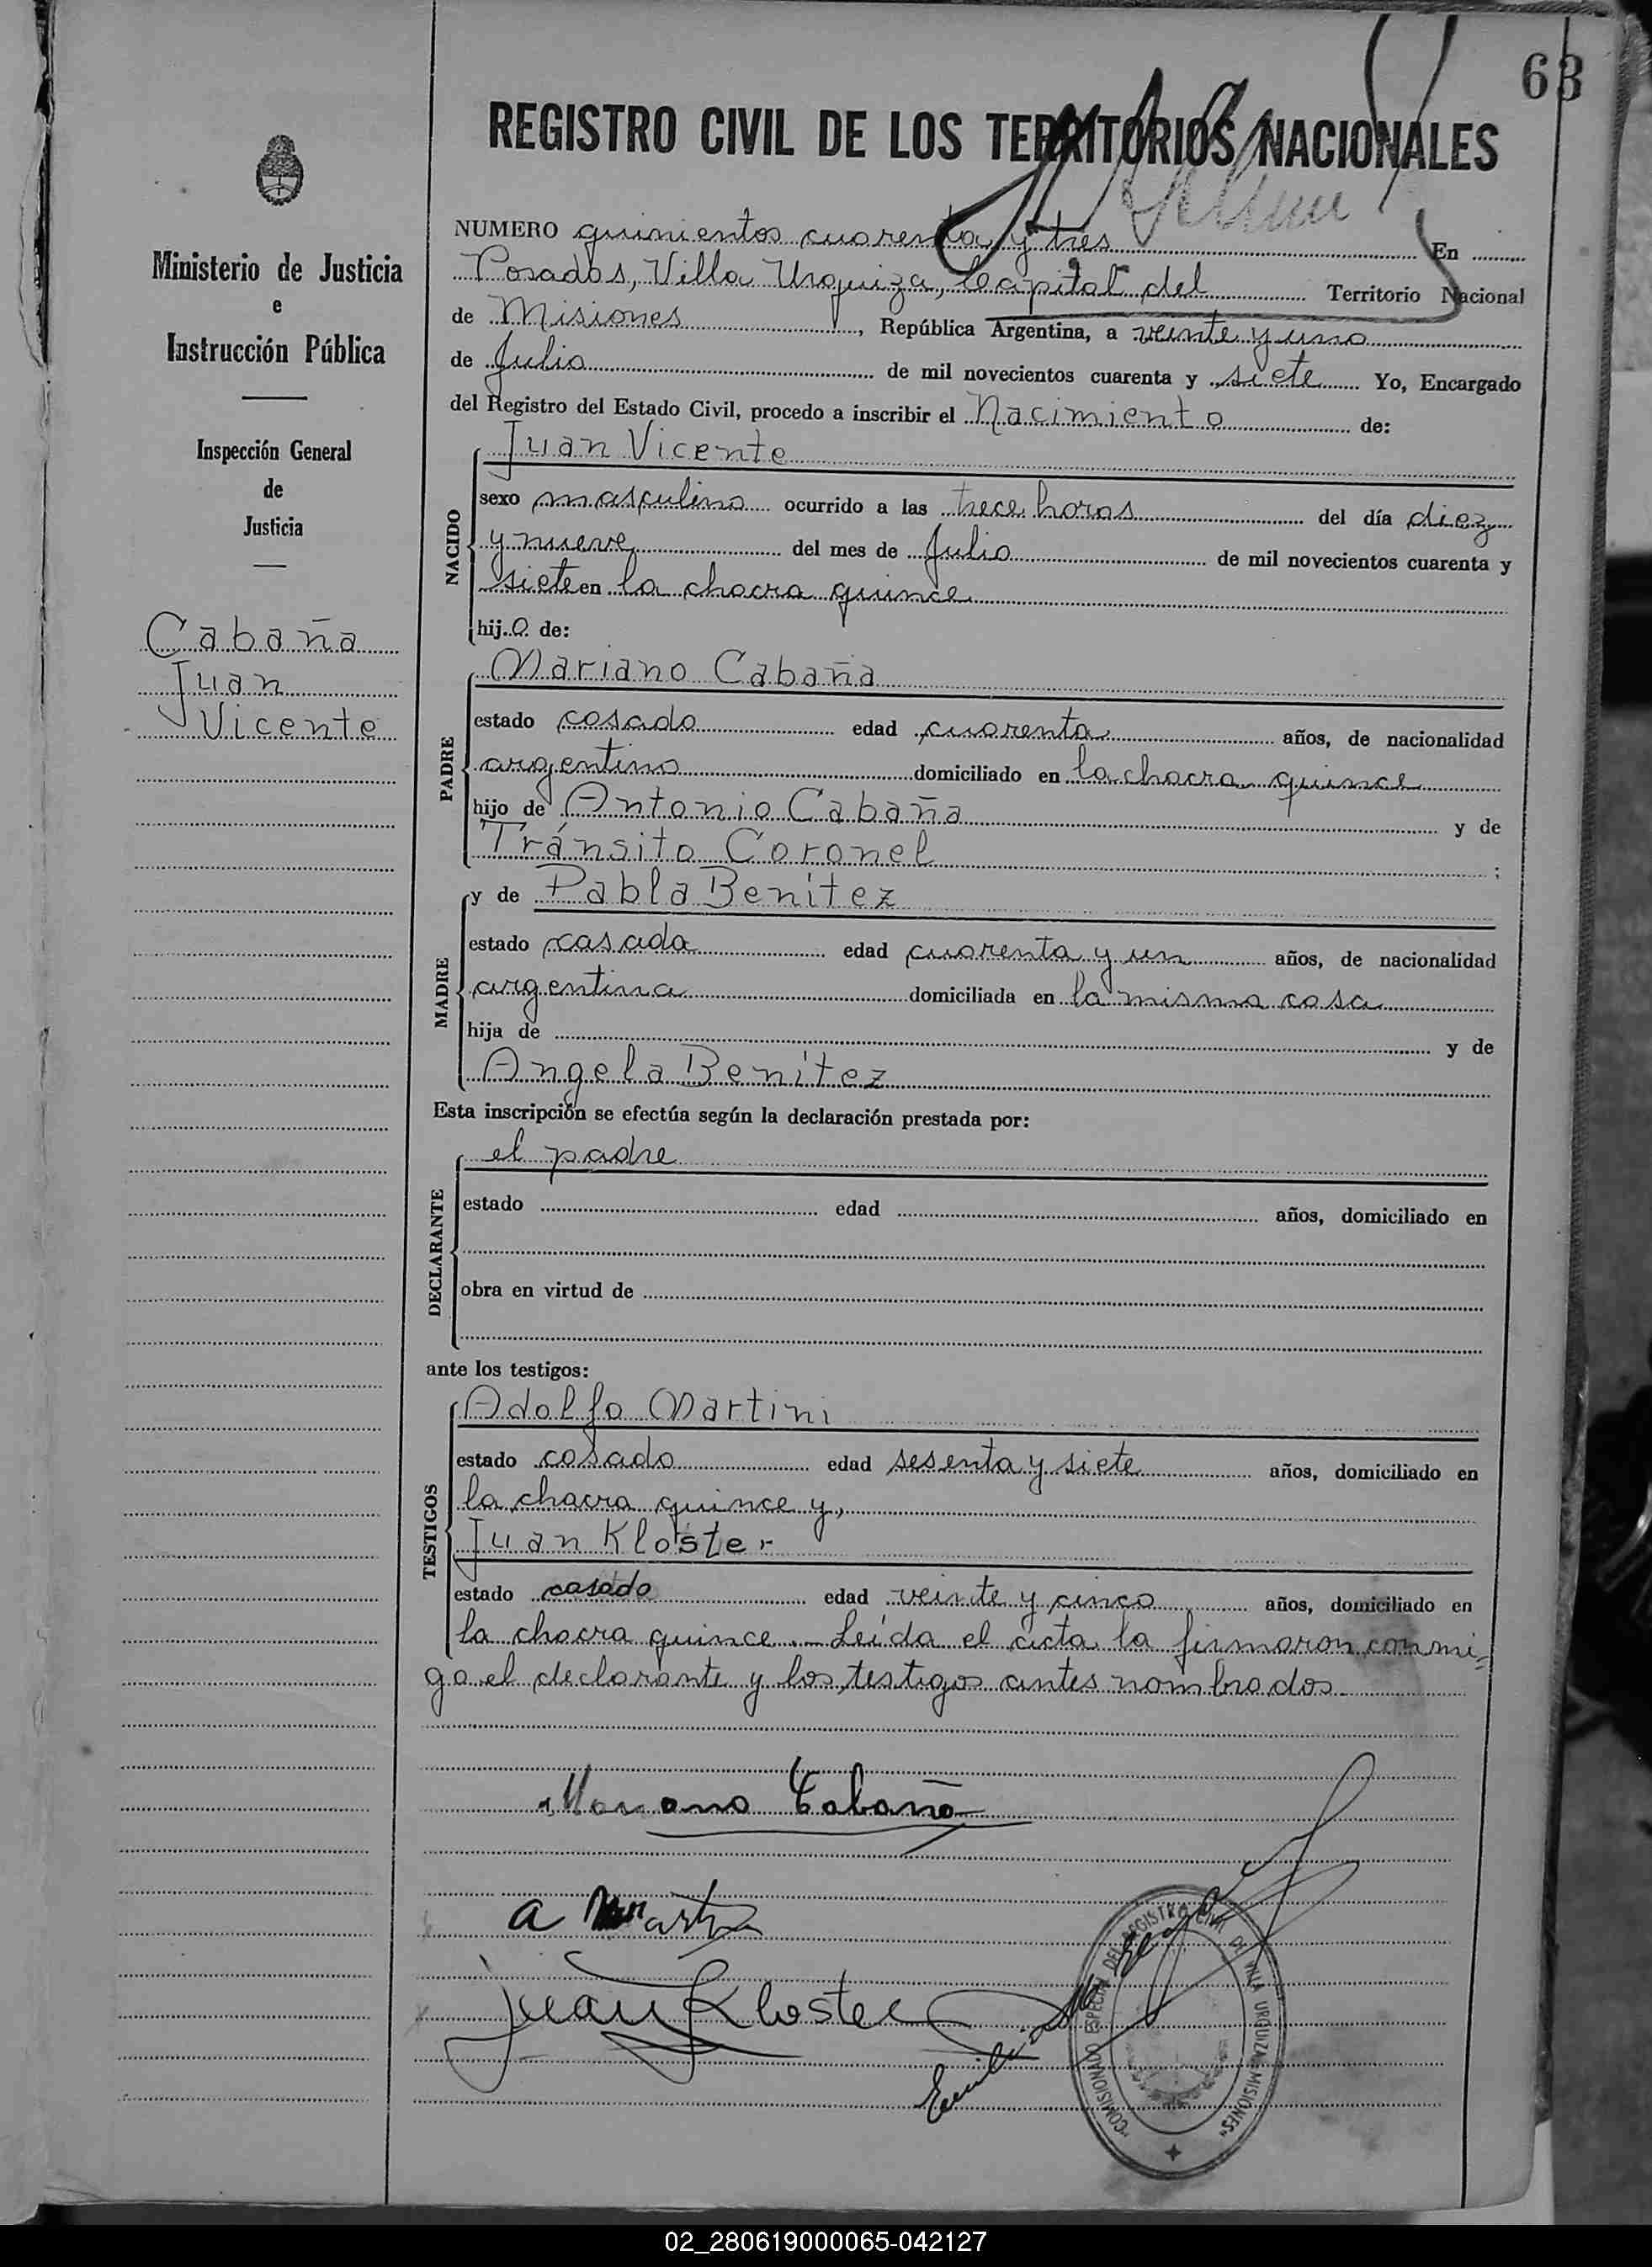 63
REGISTRO CIVIL DE LOS TERRITORIOS NACIONALES
Ministerio de Justicia
e
Instrucción Pública
Inspección General
de
Justicia
Cabaña
Juan
Vicente
NUMERO quinientos cuarenta y tres En
Posadas, Villa Urquiza, Capital del Territorio Nacional
de Misiones, República Argentina, a veinte y uno
de Julio de mil novecientos cuarenta y siete Yo, Encargado
del Registro del Estado Civil, procedo a inscribir el Nacimiento de:
NACIDO
Juan Vicente
sexo masculino ocurrido a las trece horas del día diez
y nueve del mes de Julio de mil novecientos cuarenta y
siete en la chacra quince
hijo de:
PADRE
Mariano Cabaña
estado casado edad cuarenta años, de nacionalidad
argentino domiciliado en la chacra quince
hijo de Antonio Cabaña y de
Tránsito Coronel ;
MADRE
y de Pabla Benítez
estado casada edad cuarenta y un años, de nacionalidad
argentina domiciliada en la misma casa
hija de y de
Angela Benítez
Esta inscripción se efectúa según la declaración prestada por:
DECLARANTE
el padre
estado edad años, domiciliado en
obra en virtud de
ante los testigos:
TESTIGOS
Adolfo Martini
estado casado edad sesenta y siete años, domiciliado en
la chacra quince y,
Juan Kloster
estado casado edad veinte y cinco años, domiciliado en
la chacra quince. — Leída el acta la firmaron conmi=
go el declarante y los testigos antes nombrados.
Mariano Cabaña
a Martini
Juan Kloster
Emilio
"COMISIONADO ESPECIAL DEL REGISTRO CIVIL DE VILLA URQUIZA MISIONES"
02_280619000065-042127